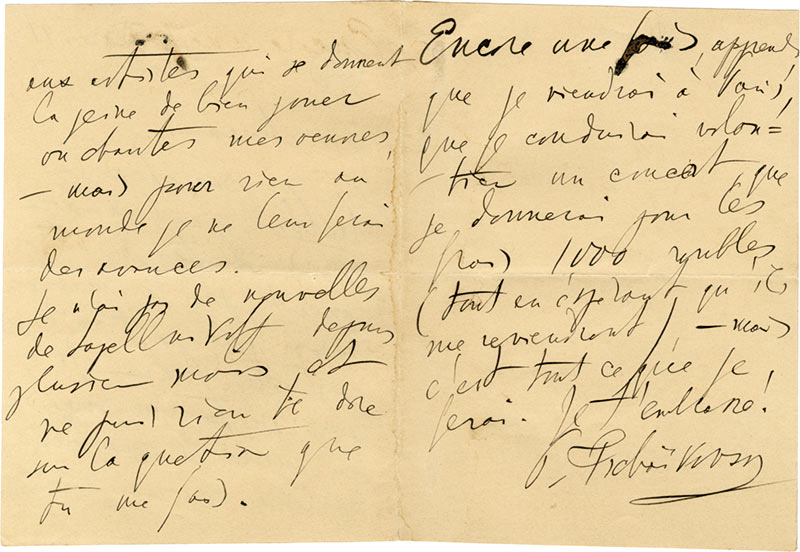 aux artistes qui se donnent
la peine de bien jouer
ou chanter mes oeuvres,
— mais pour rien au
monde je ne leur ferai
des avances.
Je n'ai pas de nouvelles
de Sapellnikoff depuis
plusieurs mois et
ne puis rien te dire
sur la question que
tu me fais.
Encore une fois, apprends
que je viendrai à Paris,
que je conduirai volon=
=tiers un concert, que
je donnerai pour les
frais 1000 roubles
(tout en espérant qu'ils
me reviendront) — mais
c'est tout ce que je
ferai. Je t'embrasse!
P. Tschaïkovsky